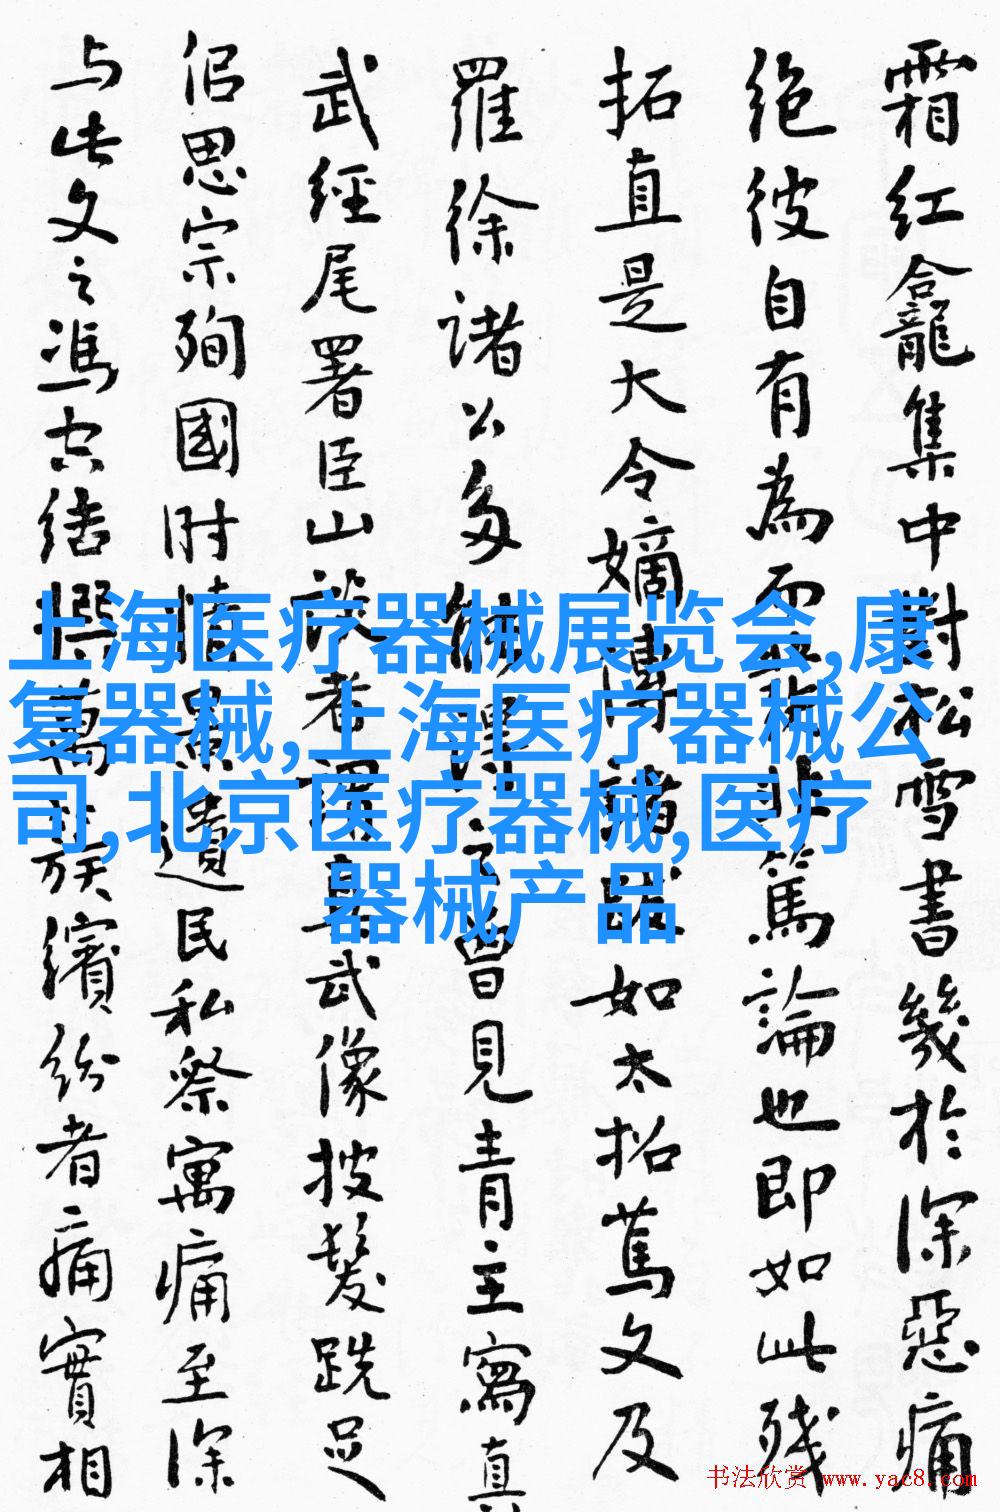 霜红龛集中對松雪書幾於深惡痛
绝彼自有為而非篤論也即如此残
拓直是大令嫡如太拓篤文及
羅徐諸公多曾見青主寫真
武經尾署臣山者武像披髮跣足
侣思宗殉國时情遺民私祭寓痛至深
与此文之馮空结撰萬族繽紛者痛實相
上海医疗器械展览会,康
复器械,上海医疗器械公
司,北京医疗器械,医疗
器械产品
书法欣赏 www.yac8.com